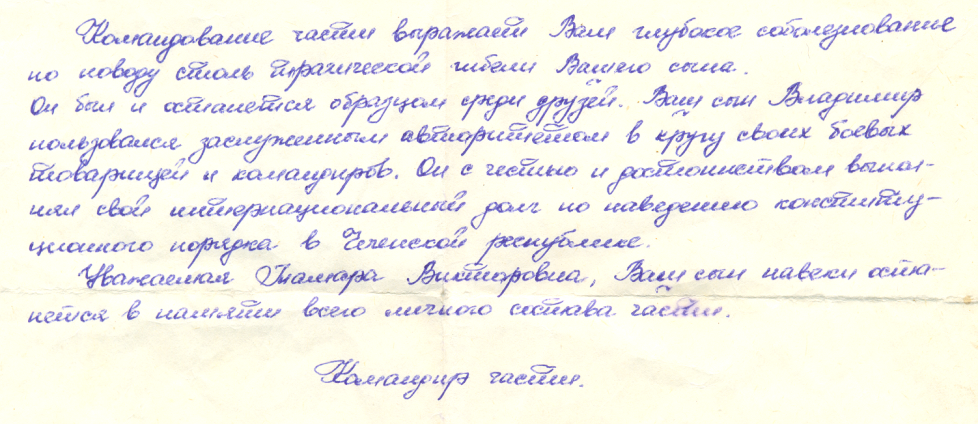 Командование части выражает Вам глубокое соболезнование
по поводу столь трагической гибели Вашего сына.
Он был и останется образцом среди друзей. Ваш сын Владимир
пользовался заслуженным автаритетом в кругу своих боевых
товарищей и командиров. Он с честью и достоинством выпол-
нял свой интернациональный долг по наведению конститу-
ционного порядка в Чеченской республике.
Уважаемая Тамара Викторовна, Ваш сын навеки оста-
нется в памяти всего личного состава части.
Командир части.